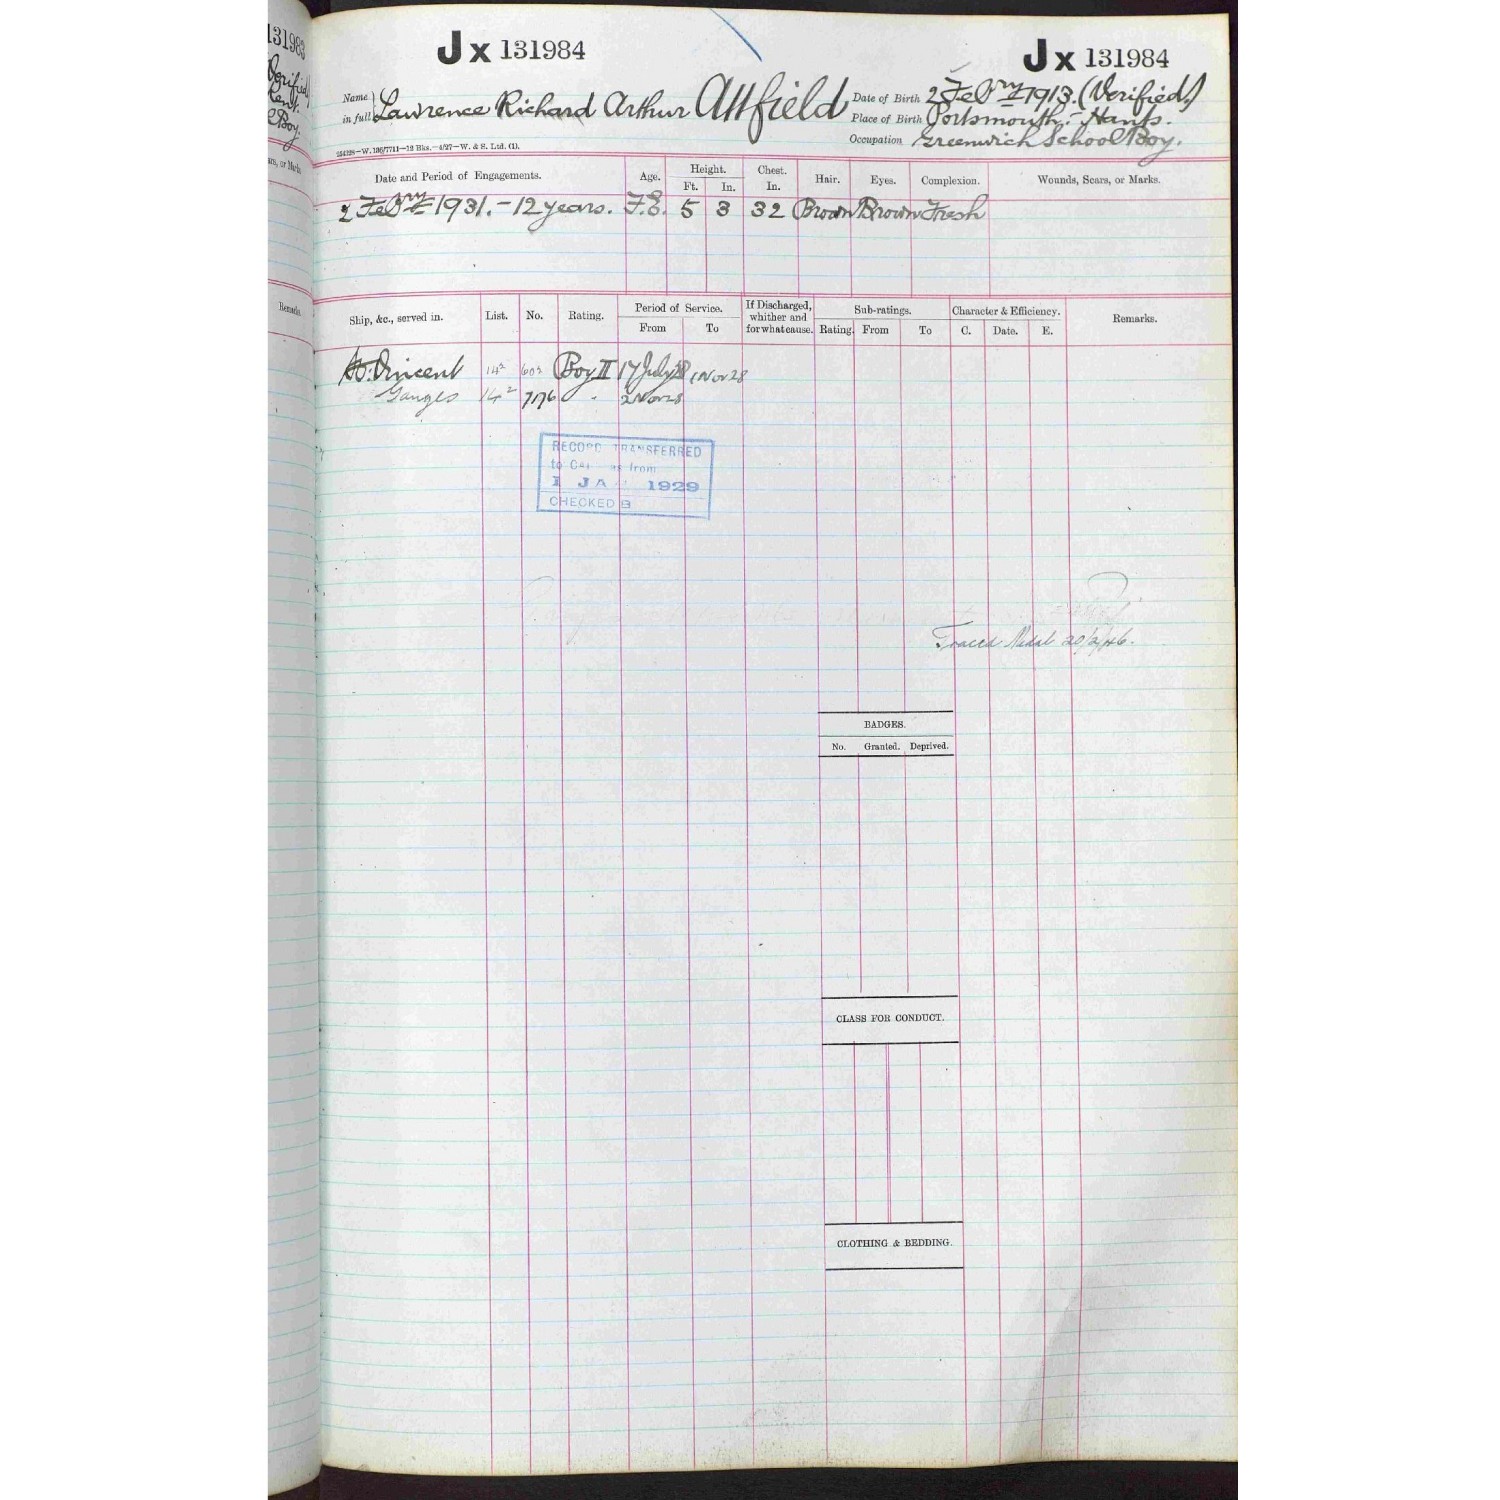 131983
Verified
Kent.
Boy.
ars, or Marks
Remarks.
Jx 131984
Jx 131984
Name in full } Lawrence Richard Arthur Attfield
Date of Birth 2 Febry 1913. (Verified.)
Place of Birth Portsmouth:- Hants.
Occupation Greenwich School Boy.
Date and Period of Engagements. Age. Height. Ft. In. Chest. In. Hair. Eyes. Complexion. Wounds, Scars, or Marks.
2 Febry 1931. - 12 years. F.E. 5 3 32 Brown Brown Fresh
Ship, &c., served in. List. No. Rating. Period of Service. From To If Discharged, whither and for what cause. Sub-ratings. Rating. From To Character & Efficiency. C. Date. E. Remarks.
St. Vincent 14² Boy II 17 July 28 1 Nov 28
Ganges 14² 7176 " 2 Nov 28
RECORD TRANSFERRED
to from
1 JA 1929
CHECKED B
Traced Medal
BADGES.
No. Granted. Deprived.
CLASS FOR CONDUCT.
CLOTHING & BEDDING.